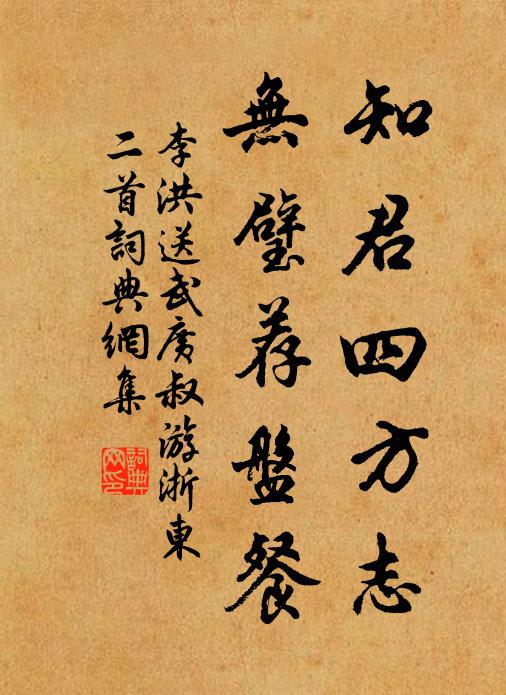 知君四方志
無璧荐盤餐
李洪送武廣叔游浙東
二首詞典網集
詞典網印